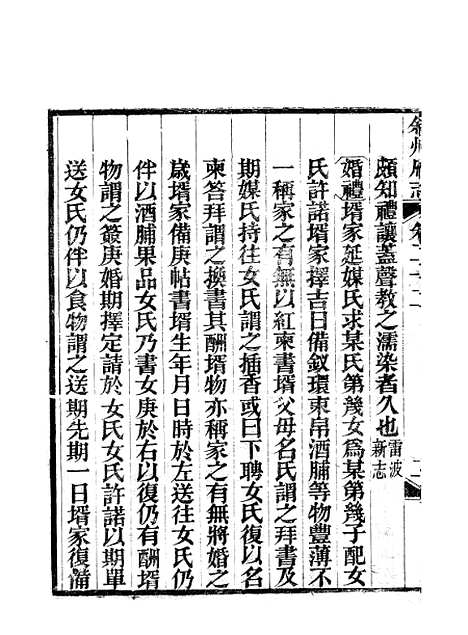 敘州府志 卷二十二
頗知禮讓蓋聲教之濡染者久也雷波新志
婚禮壻家延媒氏求某氏第幾女爲某第幾子配女
氏許諾壻家擇吉日備釵環束帛酒脯等物豐薄不
一稱家之有無以紅柬書壻父母名氏謂之拜書及
期媒氏持往女氏謂之插香或曰下聘女氏復以名
柬答拜謂之換書其酬壻物亦稱家之有無將婚之
歲壻家備庚帖書壻生年月日時於左送往女氏仍
伴以酒脯果品女氏乃書女庚於右以復仍有酬壻
物謂之簽庚婚期擇定請於女氏女氏許諾以期單
送女氏仍伴以食物謂之送期先期一日壻家復備